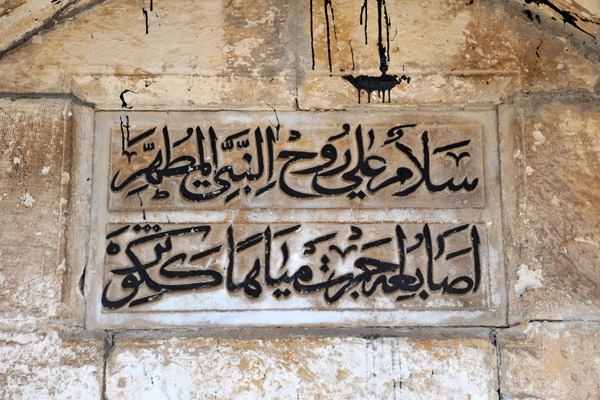 سلام علي روح النبي المطهر
اصابعه جرت مياها ككوثر